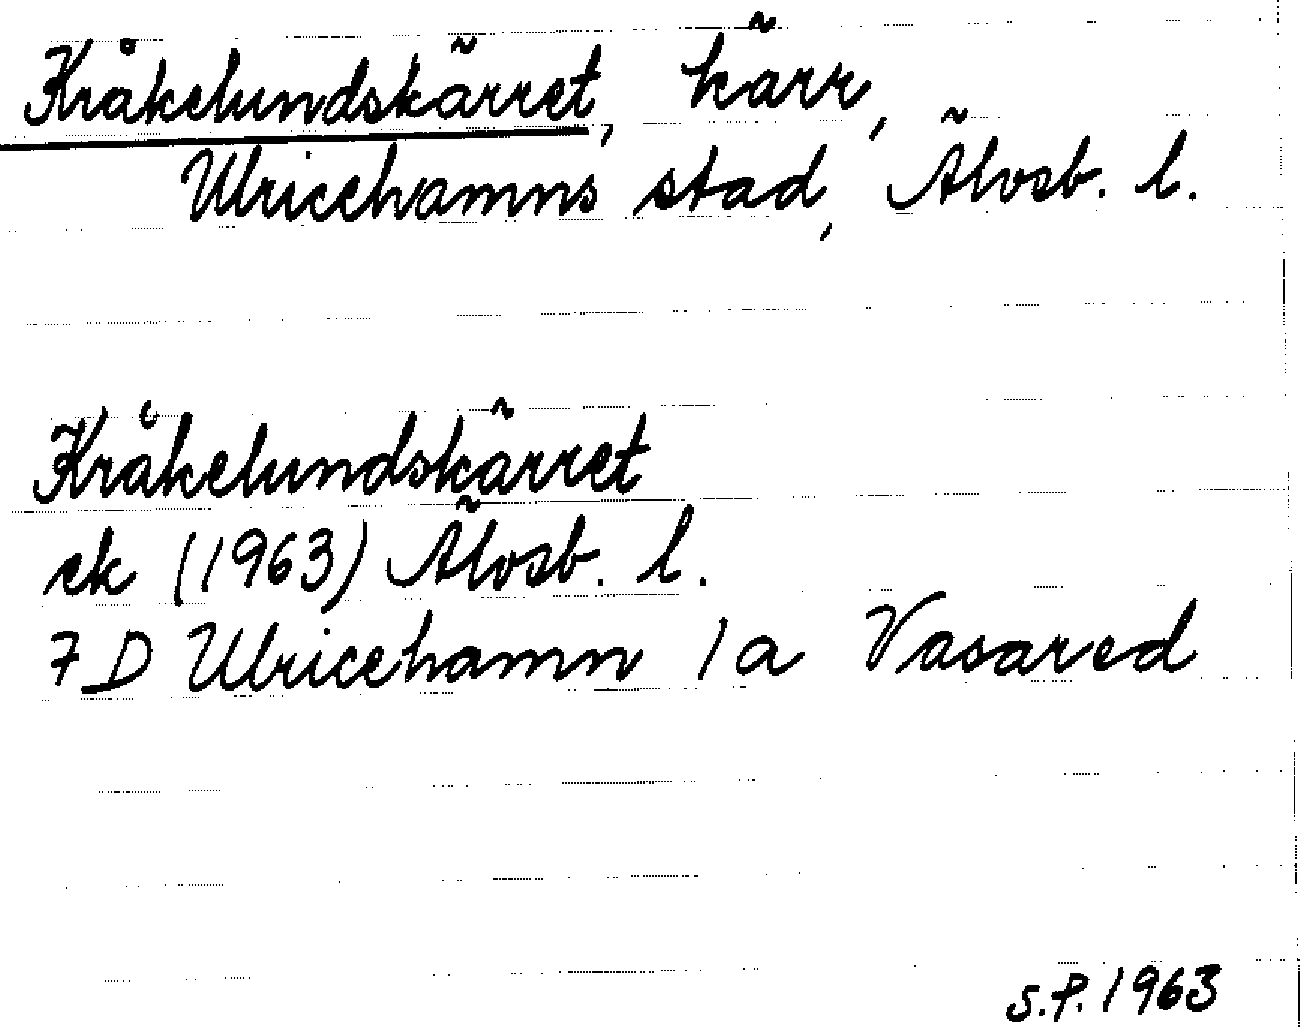 Kråkelundskärret, kärr,
Ulricehamns stad, Älvsb. l.
Kråkelundskärret
ek (1963) Älvsb. l.
7 D Ulricehamn 1 a Vasared
S.P. 1963